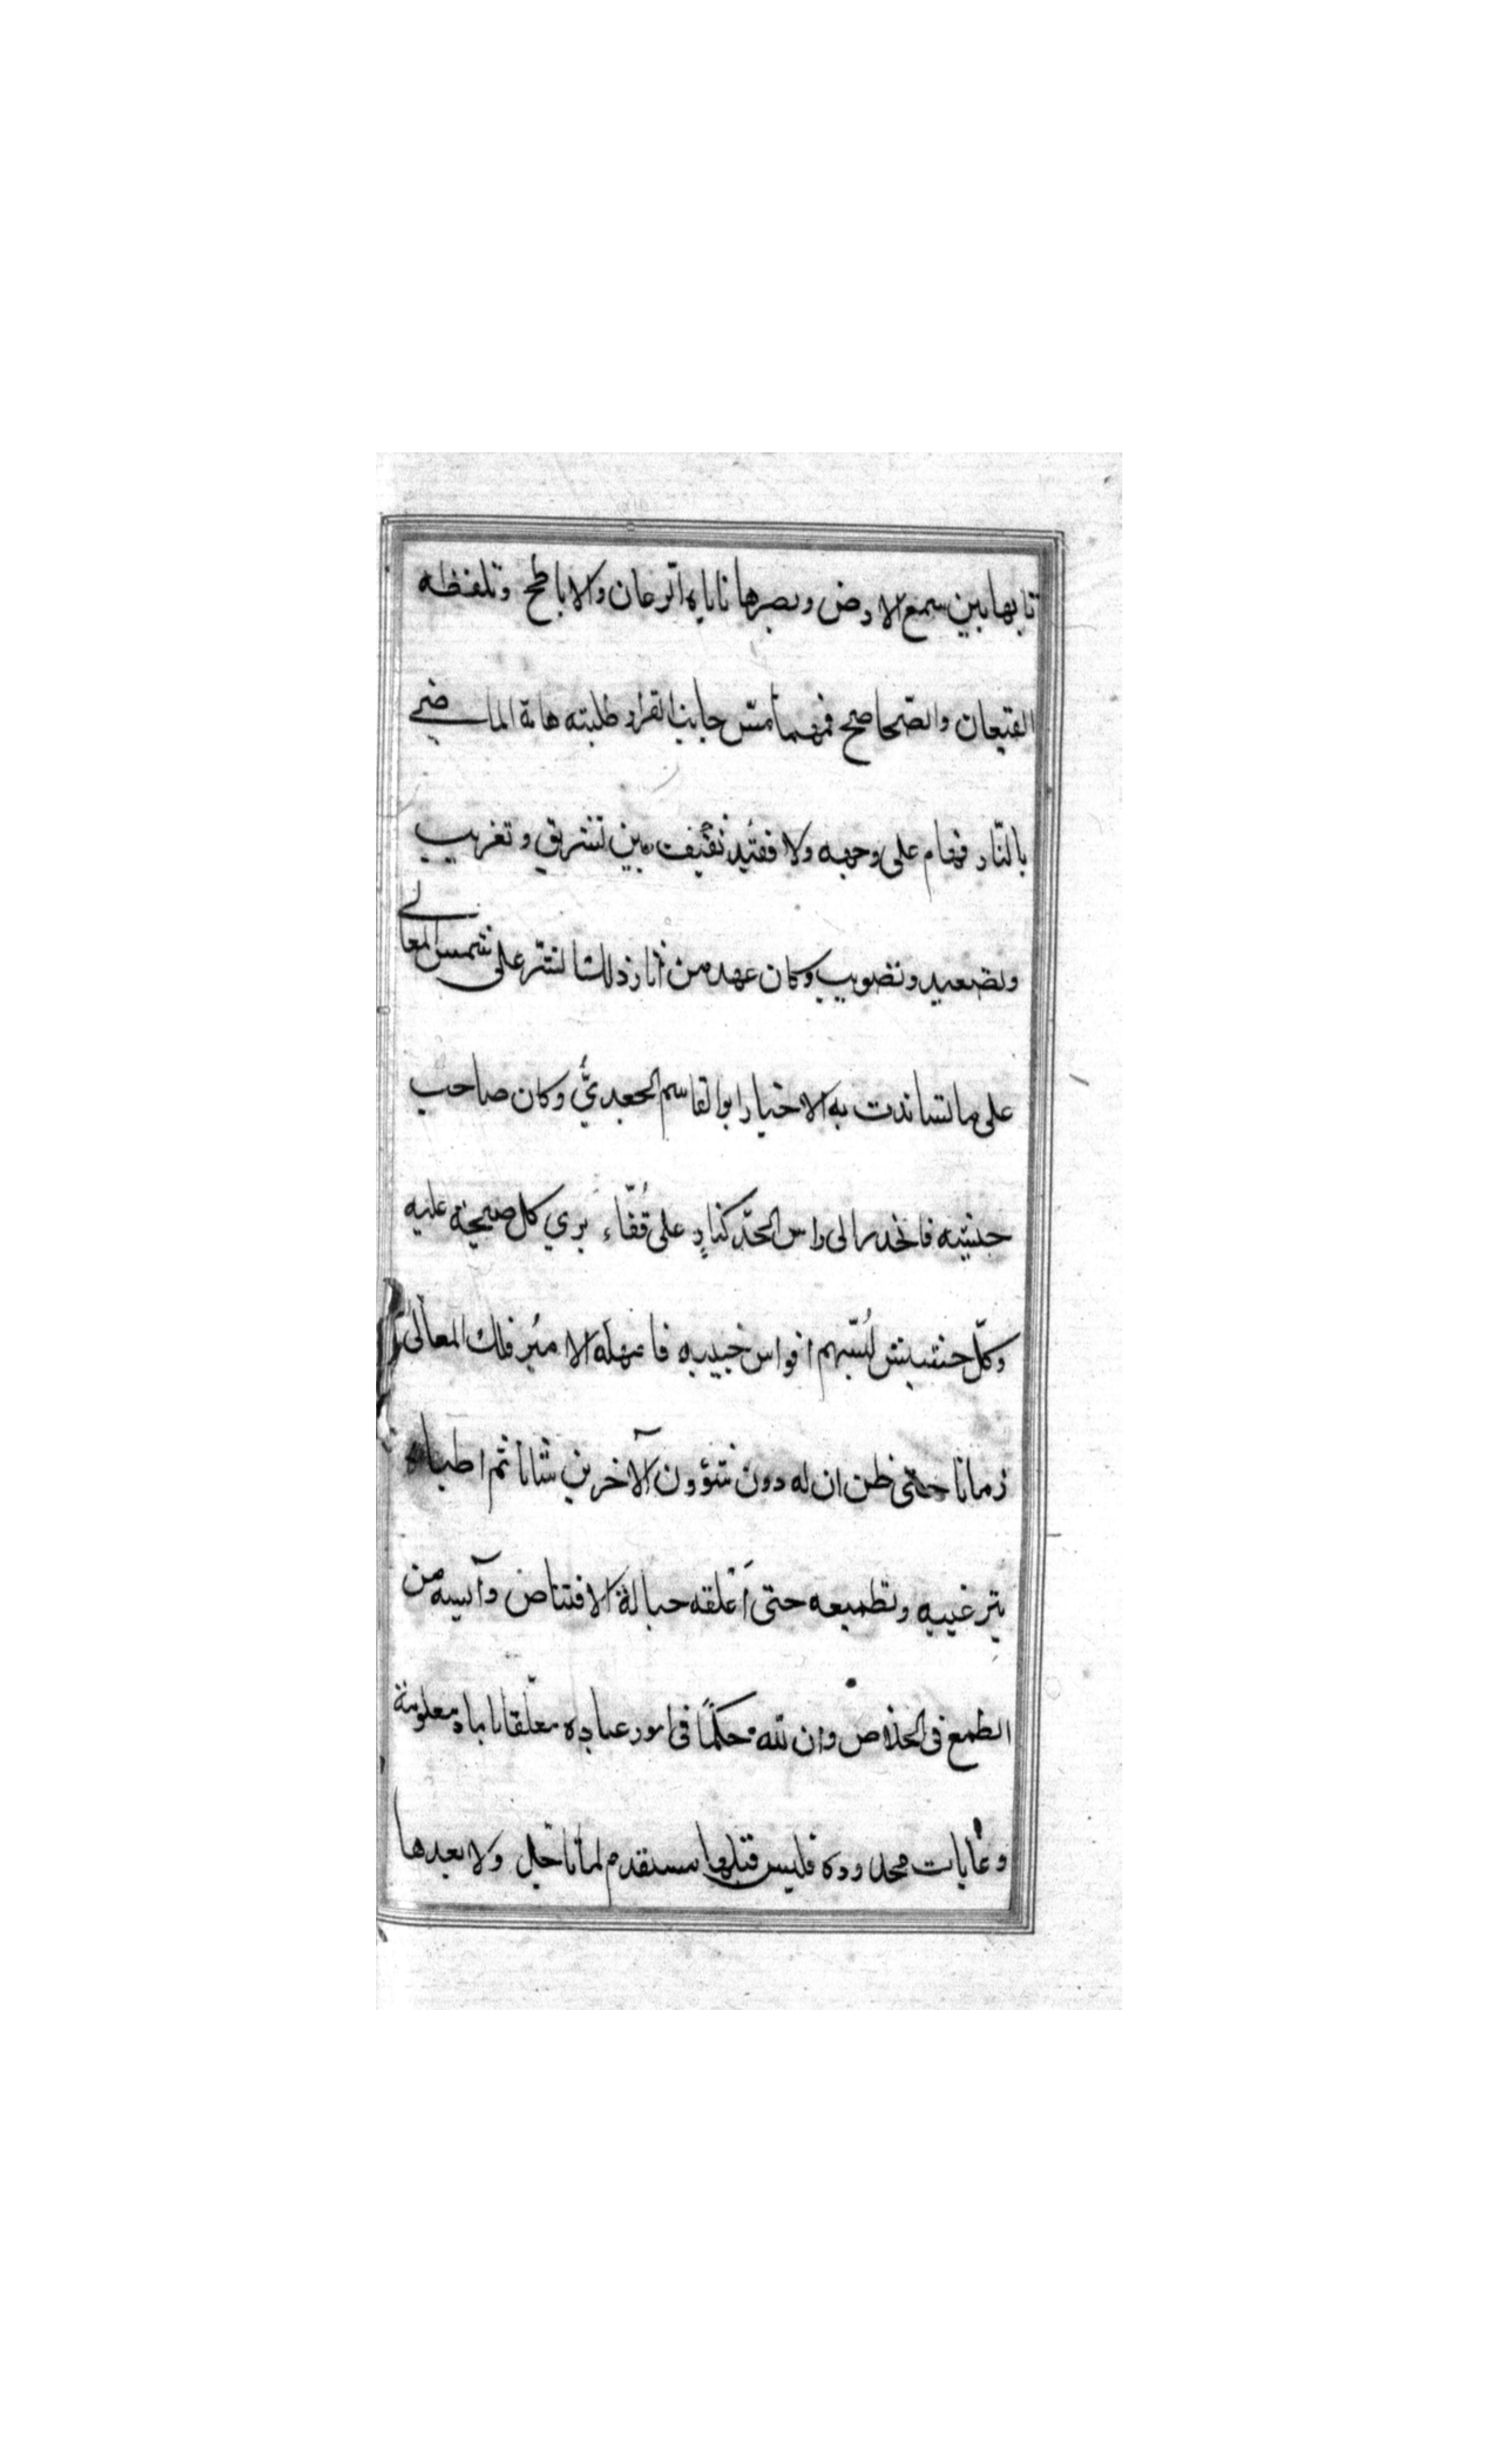 تابها بين سمع الارض وبصرها تاباه الرعان والاباطح وتلفظه
القيعان والصّحاصح فمهما مسّ جانب القرار طلبته هامة الماضي
بالنّار فهام على وجهه ولا فئيد ثقيف بين تشريق وتغريب
وتصعيد وتصويب وكان عهد من أثار ذلك الشر على شمس المعالي
على ما تساندت به الاخبار ابو القاسم الجعديّ وكان صاحب
جنيته فانحدر الى راس الحدّ كنازٍ على قُفّاء يرى كل صيحة عليه
وكلّ حنفيش لسّبهم افواس خبيبه فامهله الامير فلك المعالى
زمانا حتى ظن ان له دون شؤون الآخرين شانا ثم اطباه
بترغيبه وتطميعه حتى أعلقه حبالة الاقتناص وآيسه من
الطمع فى الخلاص وان لله محكمًا فى امور عباده معلّقا باماد معلومة
وغايات محدوده فليس قبلها مستقدم لما تاجل ولا بعدها